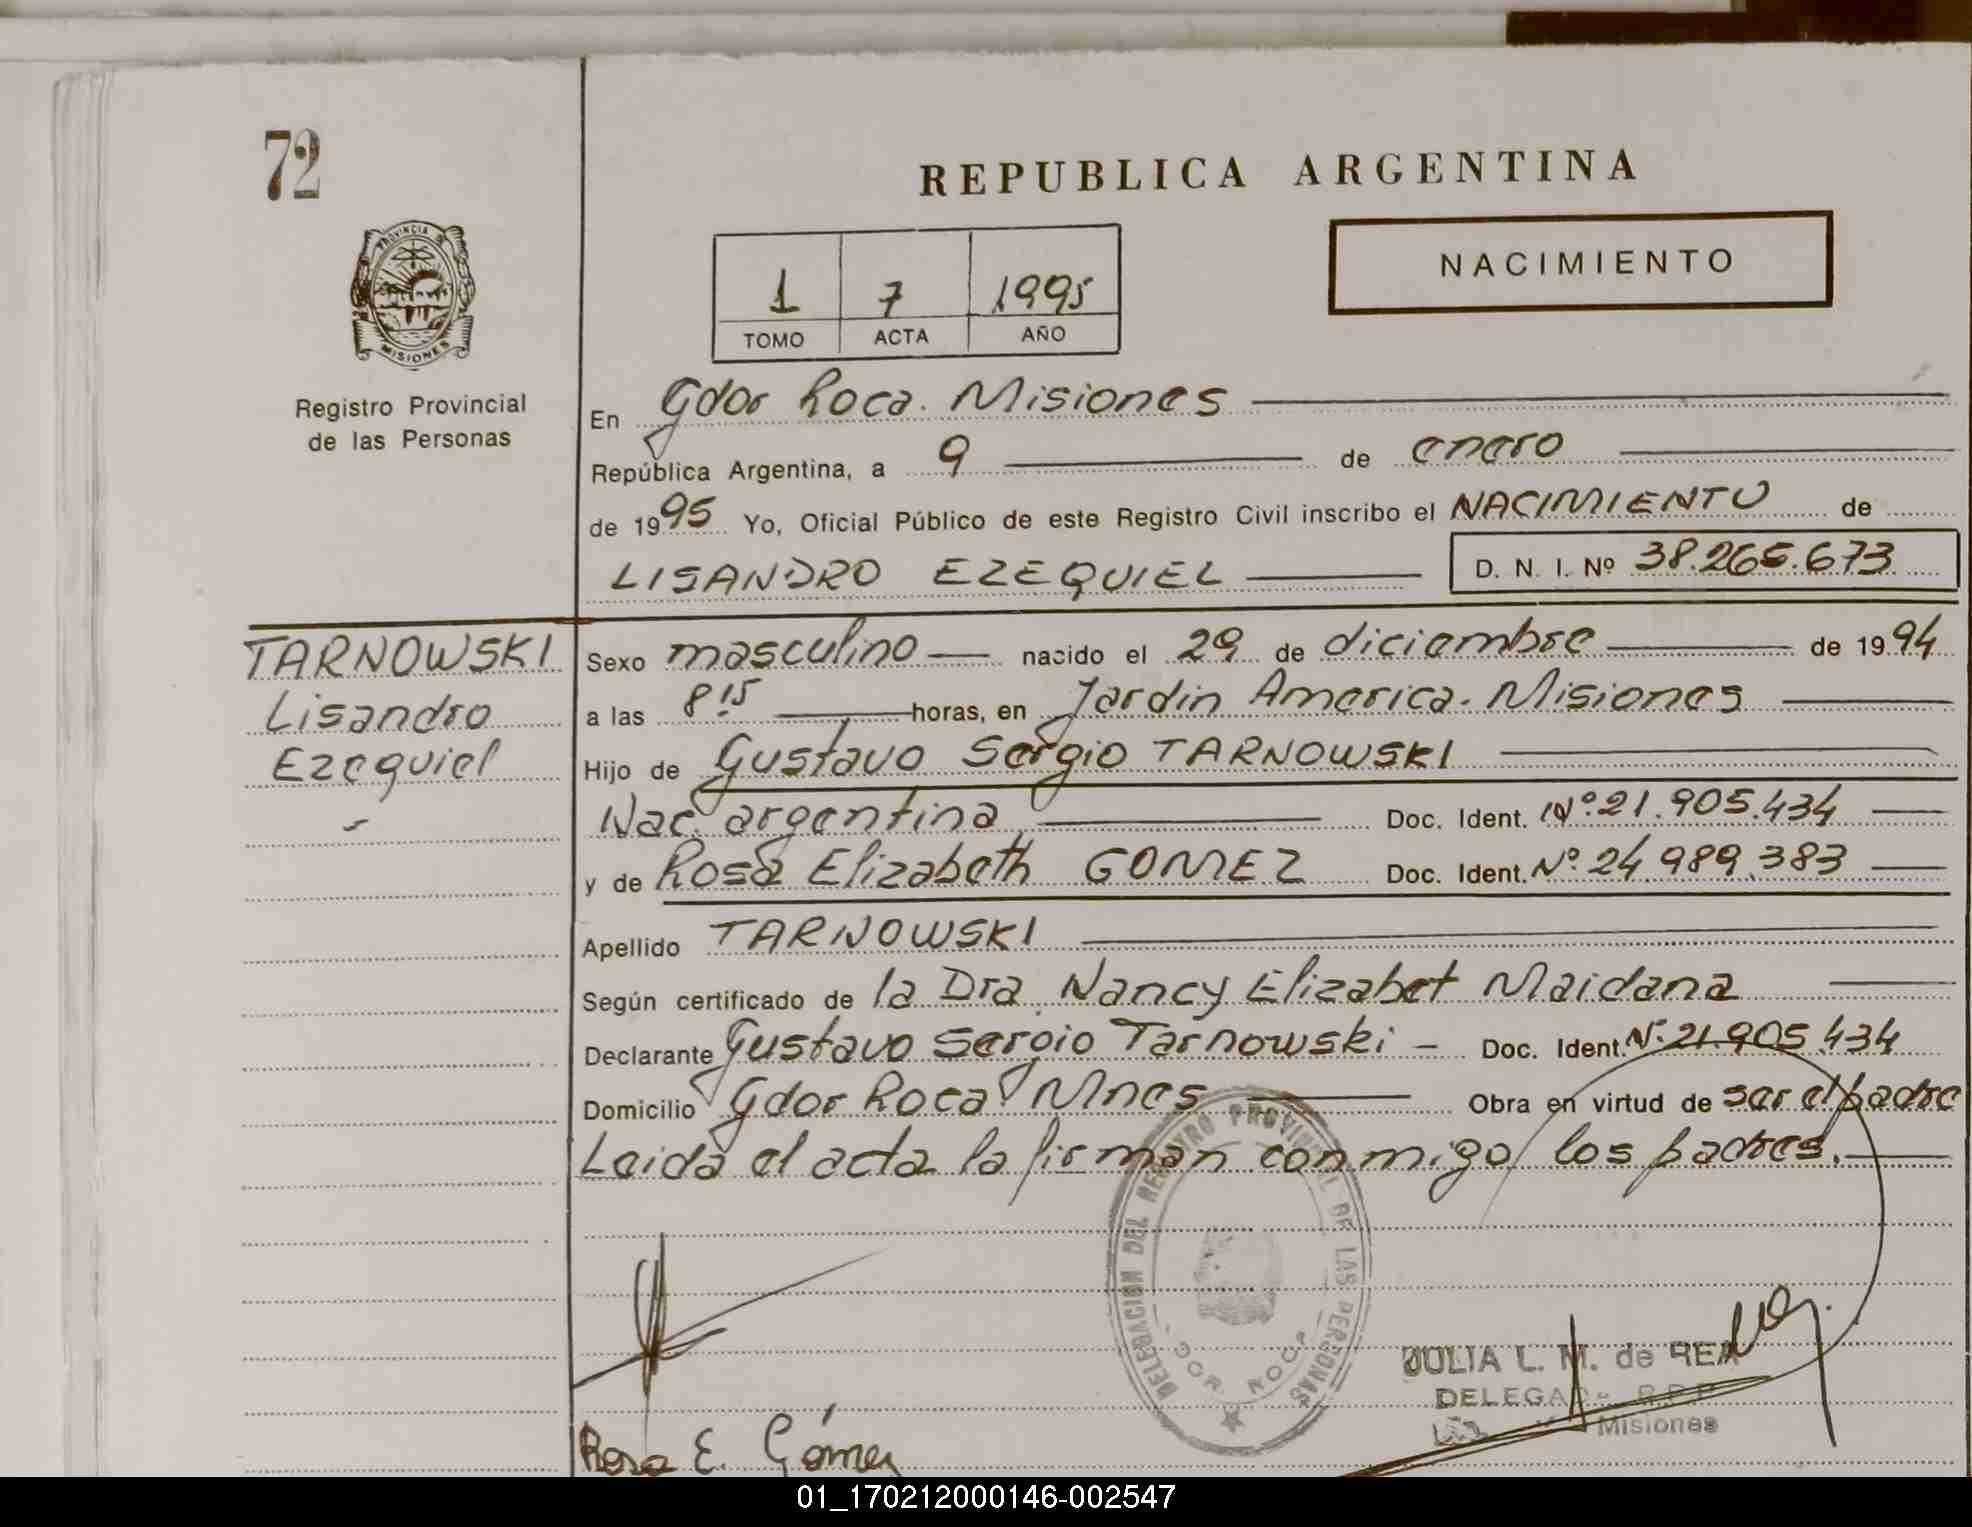 72
REPUBLICA ARGENTINA
PROVINCIA DE
MISIONES
Registro Provincial
de las Personas
1 7 1995
TOMO ACTA AÑO
NACIMIENTO
En Gdor Roca. Misiones
República Argentina, a 9 de enero
de 1995 Yo, Oficial Público de este Registro Civil inscribo el NACIMIENTO de
LISANDRO EZEQUIEL D. N. I. Nº 38.265.673
TARNOWSKI
Lisandro
Ezequiel
Sexo masculino nacido el 29 de diciembre de 1994
a las 8 15 horas, en Jardin America. Misiones
Hijo de Gustavo Sergio TARNOWSKI
Nac. argentina Doc. Ident. Nº.21.905.434
y de Rosa Elizabeth GOMEZ Doc. Ident. Nº.24.989.383
Apellido TARNOWSKI
Según certificado de la Dra. Nancy Elizabet Maidana
Declarante Gustavo Sergio Tarnowski - Doc. Ident. Nº.21.905.434
Domicilio Gdor Roca Mnes Obra en virtud de ser el padre
Leida el acta la firman conmigo los padres.
DELEGACION DEL REGISTRO PROVINCIAL DE LAS PERSONAS
GOR. ROCA
JULIA L. M. de
Misiones
Rosa E. Gómez
01_170212000146-002547